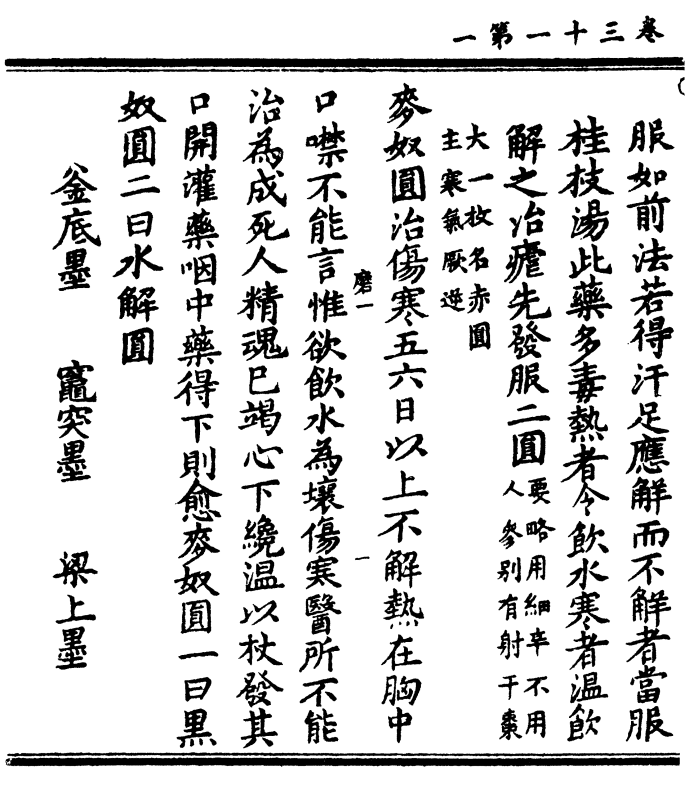 卷三十一第一
服如前法若得汗足應解而不解者當服
桂枝湯此藥多毒熱者令飲水寒者温飲
解之治瘧先發服二圓要略用細辛不用
人參别有射干棗
大一枚名赤圓
主寒氣厥逆
麥奴圓治傷寒五六日以上不解熱在胸中
口噤不能言惟欲飲水為壞傷寒醫所不能
磨一
一
治為成死人精魂已竭心下纔温以杖發其
口開灌藥咽中藥得下則愈麥奴圓一曰黒
奴圓二曰水解圓
釜底墨 竈突墨 梁上墨